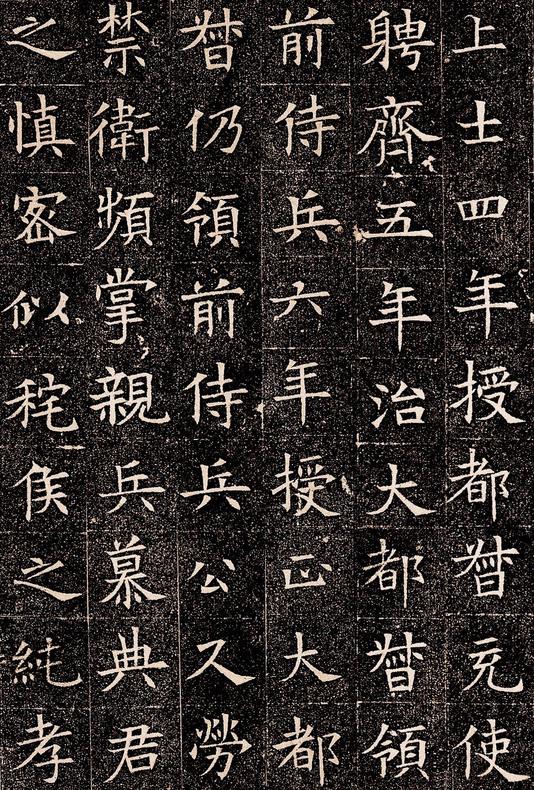 上士四年授都督充使
聘齊五年治大都督領
前侍兵六年授正大都
督仍領前侍兵公久勞
禁衛頻掌親兵慕典君
之慎密似秺侯之純孝